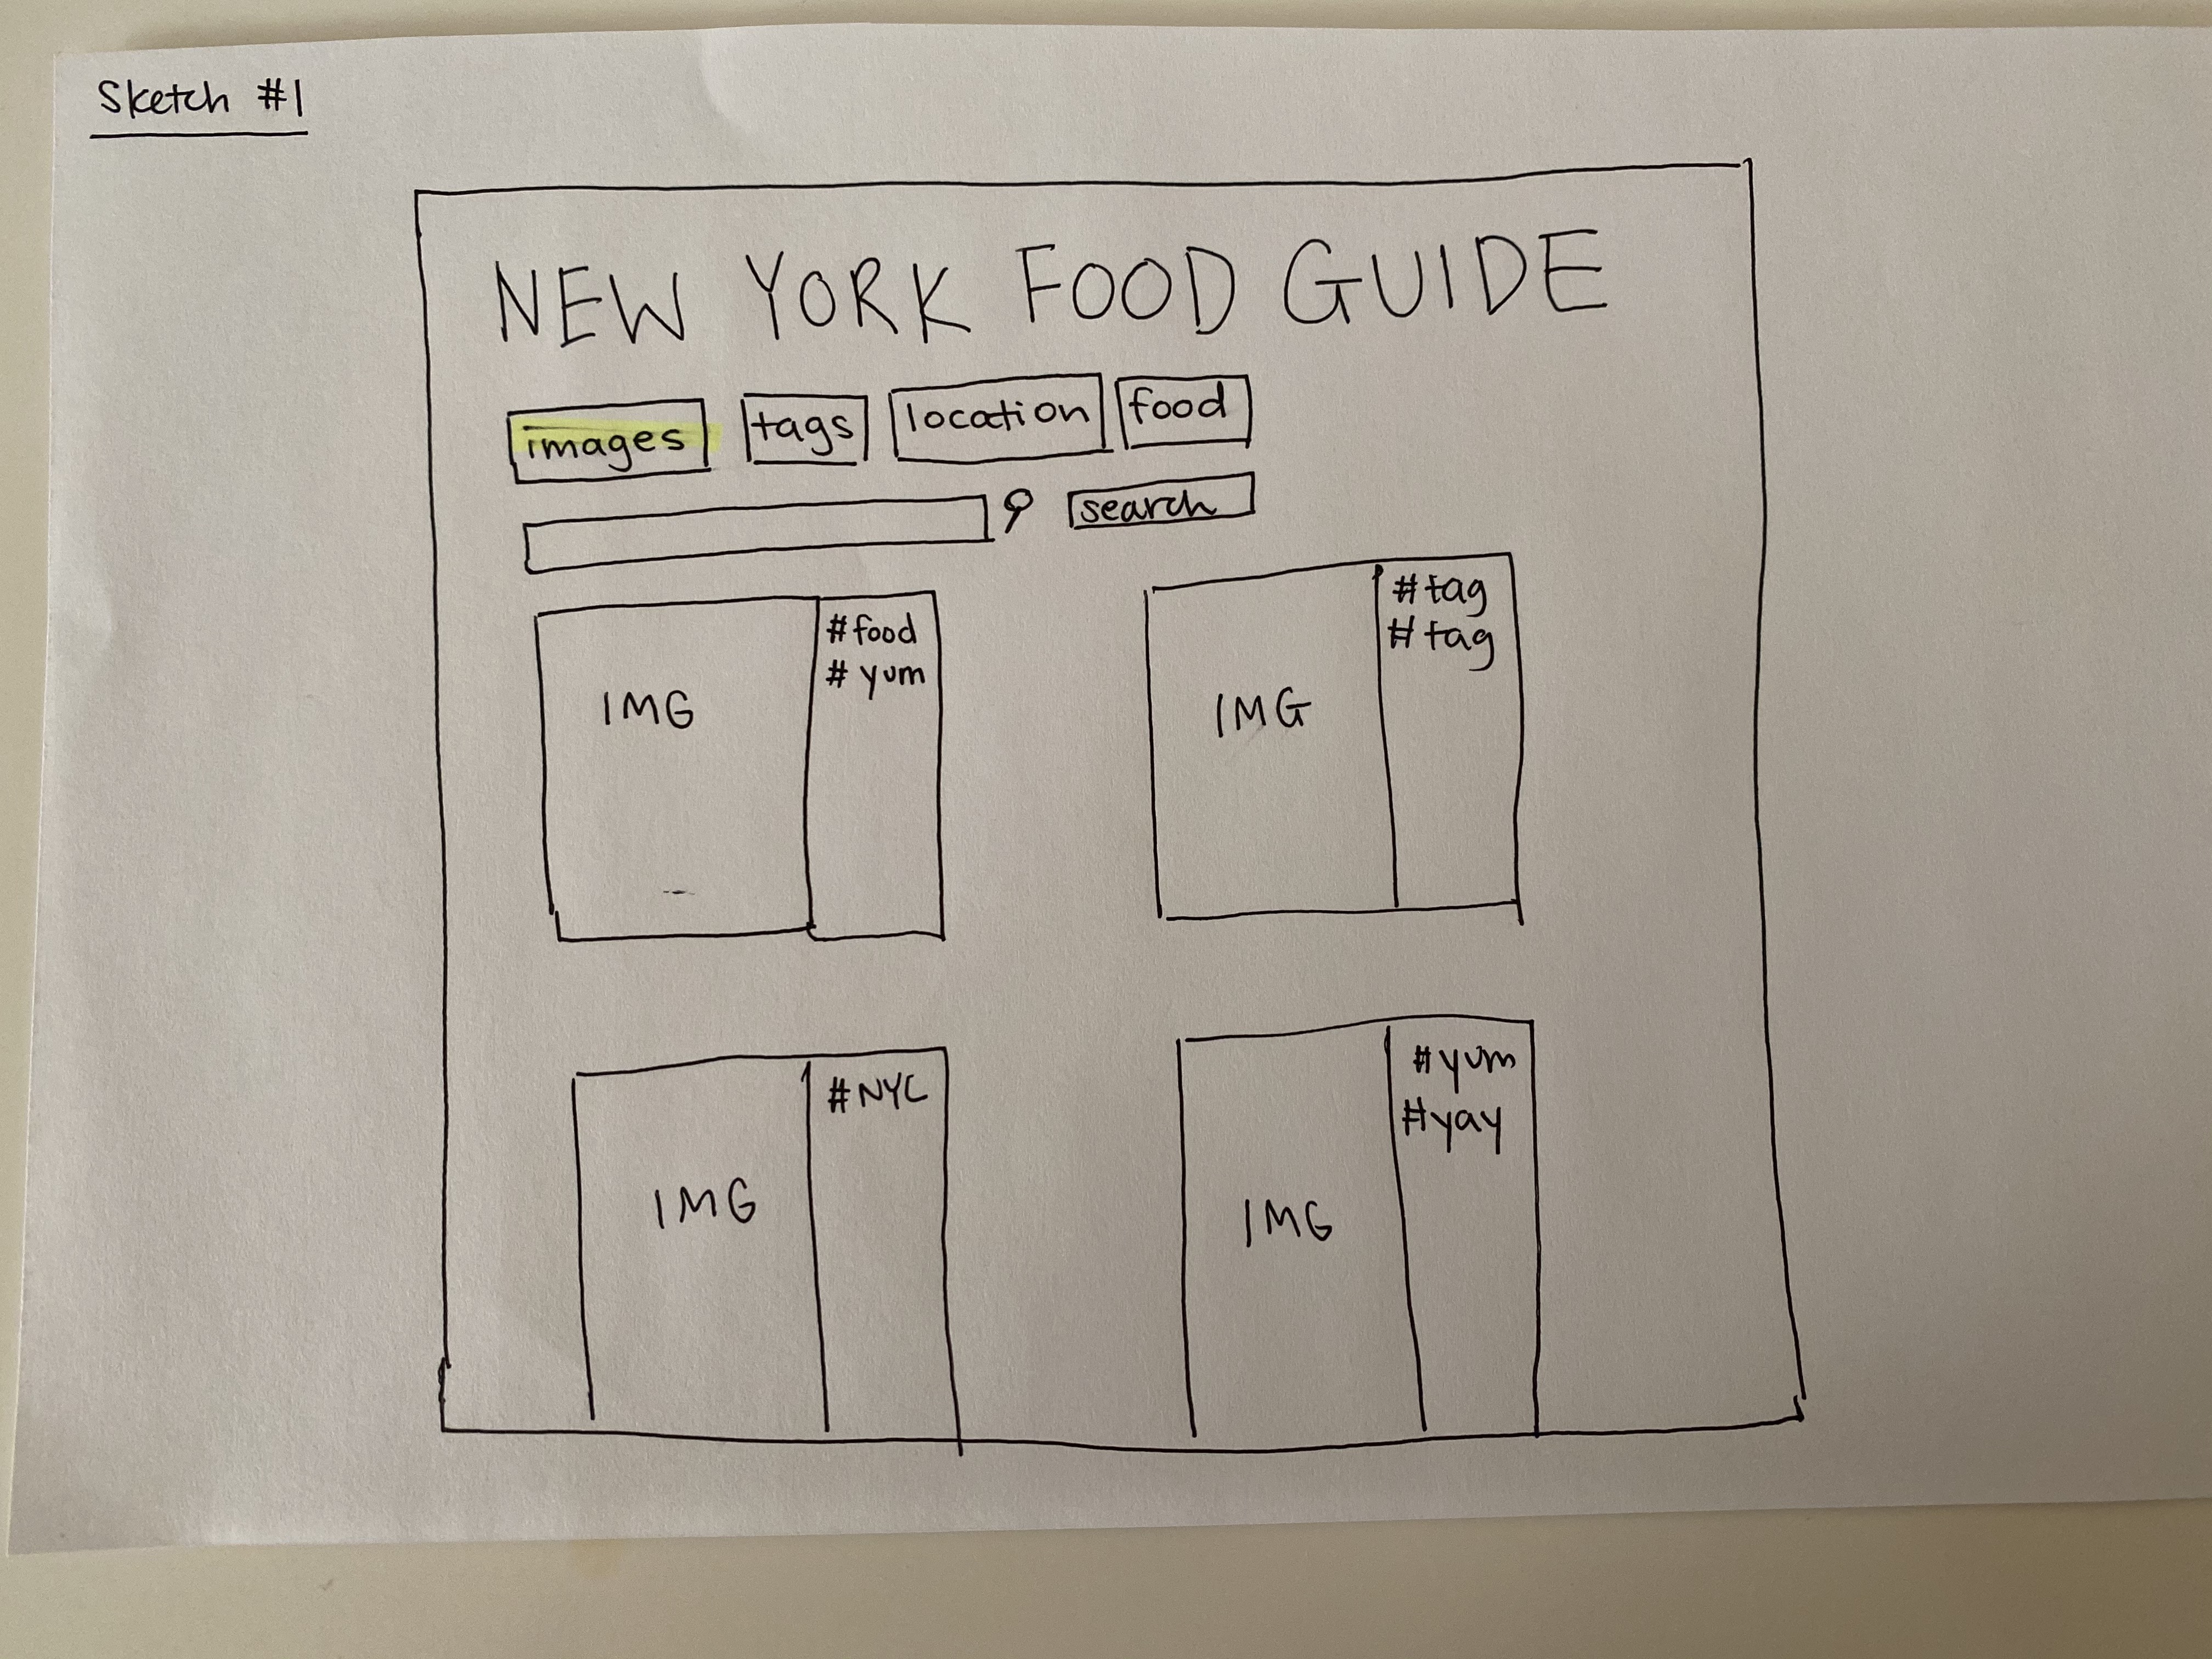 Sketch #1
NEW YORK FOOD GUIDE
images tags location food
search
IMG #food
#yum
IMG #tag
#tag
IMG #NYC
IMG #yum
#yay